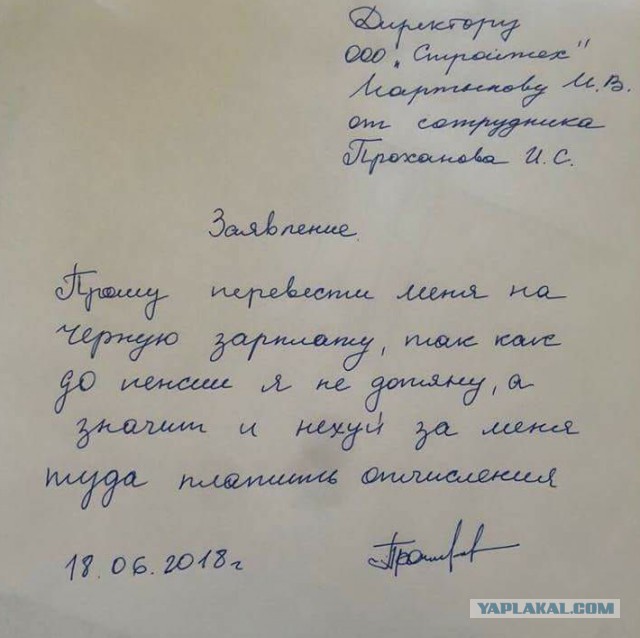 Директору
ООО „Стройтех"
Мартынову М.В.
от сотрудника
Проханова И.С.
Заявление.
Прошу перевести меня на
черную зарплату, так как
до пенсии я не дотяну, а
значит и нехуй за меня
туда платить отчисления
18.06.2018г
YAPLAKAL.COM